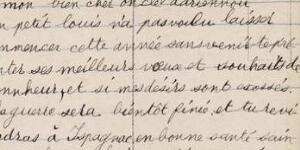 mon bien cher oncle adriennou
n petit louis n'a pas voulu laisser
mmencer cette année sans venir te pré
nter ses meilleurs vœux et souhaits de
nnheur, et si mes désirs sont exossés.
a guerre sera bientôt finie, et tu revi
dras à Ispagnac, en bonne santé sain